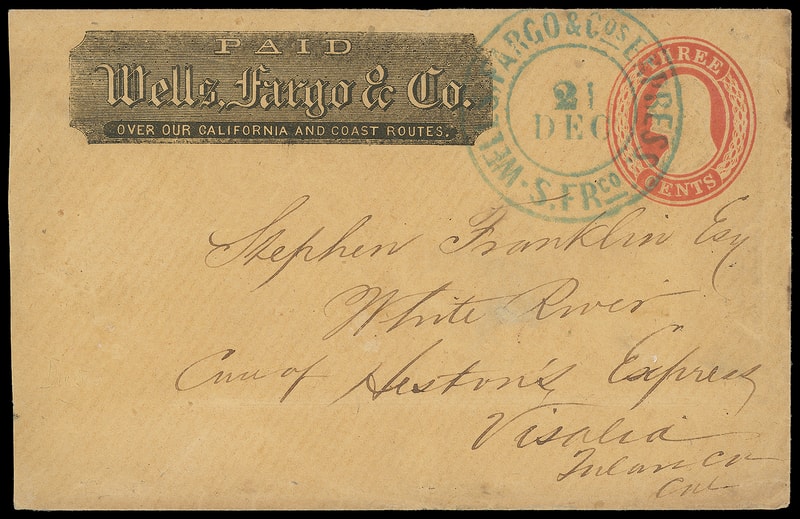 PAID
Wells, Fargo & Co.
OVER OUR CALIFORNIA AND COAST ROUTES.
WELLS, FARGO & COS EXPRESS
21
DEC
S. FRCO
THREE
CENTS
Stephen Franklin Esq
White River
Care of Heston's Express
Visalia
Tulare Co
Cal